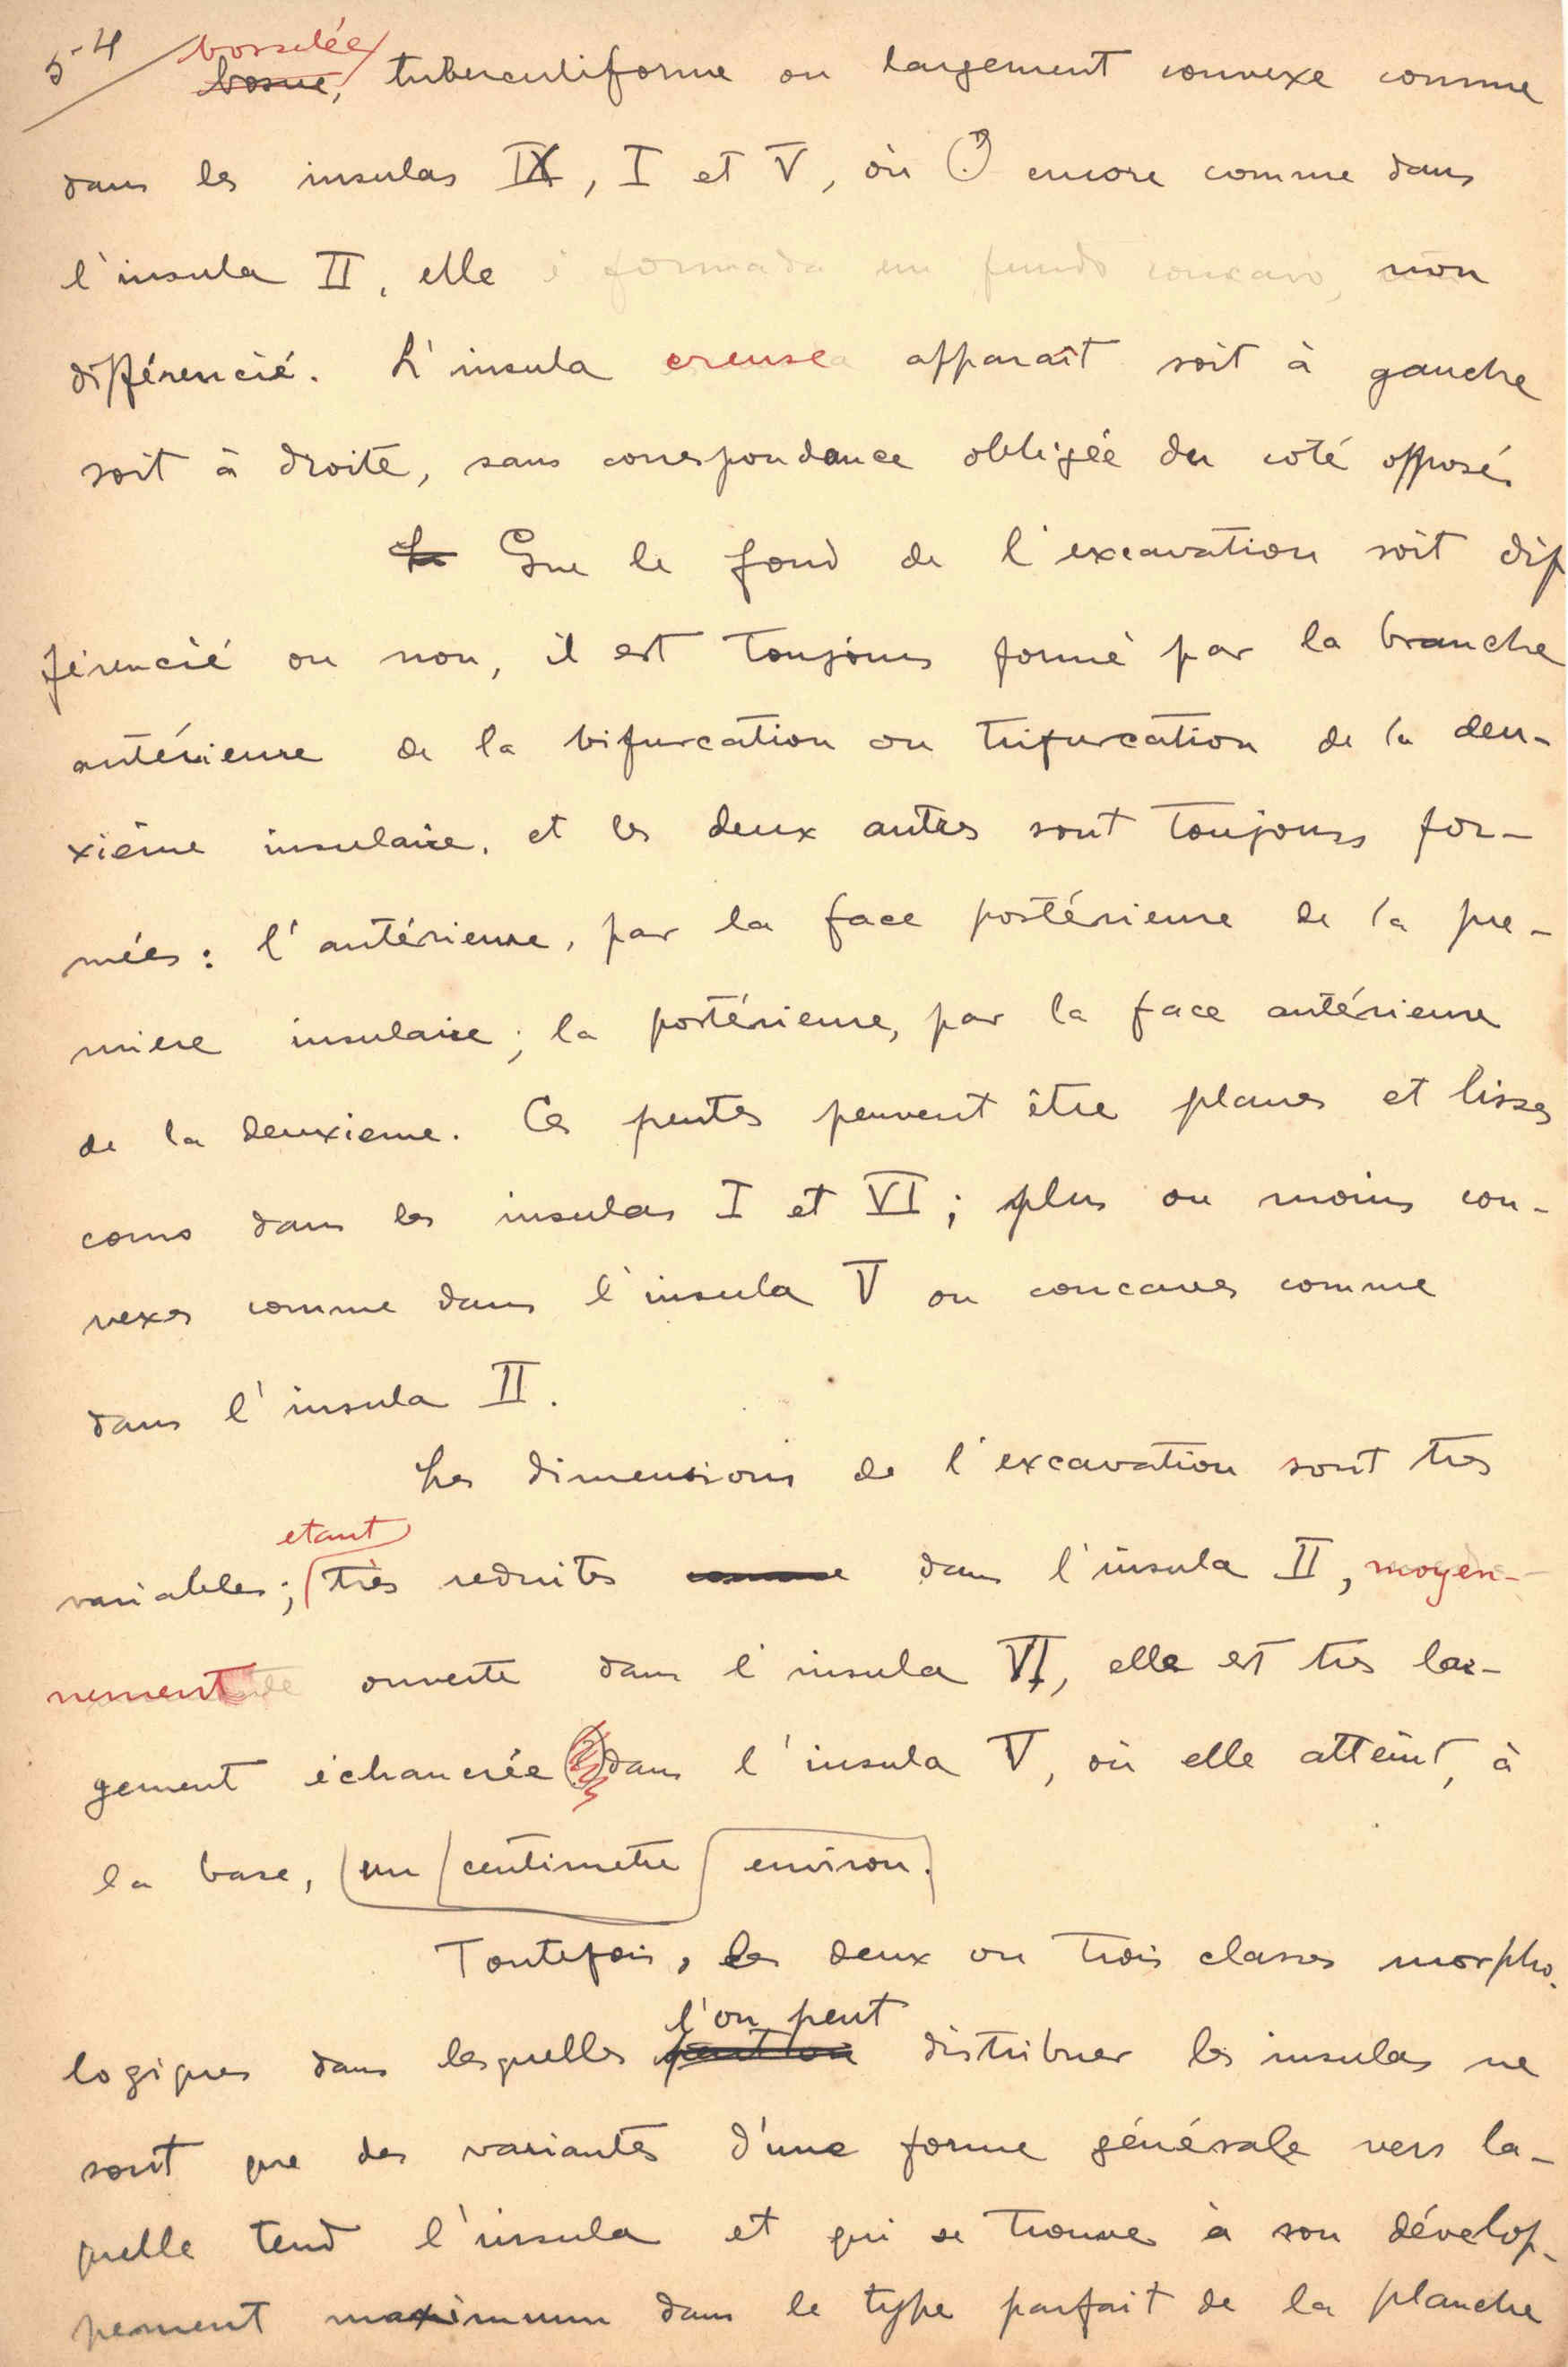 54
bosselée
bosue, tuberculiforme ou largement convexe comme
dans les insulas IX, I et V, où (?) encore comme dans
l'insula II, elle é formada um fundo concavo, non
différencié. L'insula creuse apparaît soit à gauche
soit à droite, sans correspondance obligée du coté opposé.
Que le fond de l'excavation soit dif
férencié ou non, il est toujours formé par la branche
antérieure de la bifurcation ou trifurcation de la deu-
xième insulaire, et les deux autres sont toujours for-
mées: l'antérieure, par la face postérieure de la pre-
miere insulaire; la postérieure, par la face antérieure
de la deuxieme. Ces pentes peuvent être planes et lisses
como dans les insulas I et VI; plus ou moins con-
vexes comme dans l'insula V ou concaves comme
dans l'insula II.
Les dimensions de l'excavation sont tres
etant
variables; très reduites comme dans l'insula II, moyen-
nement ouverte dans l'insula VI, elle est tres lar-
gement échancrée (?) dans l'insula V, où elle atteint, à
la base, un centimetre environ.
Toutefois, les deux ou trois classes morpho-
l'on peut
logiques dans lesquelles peut on distribuer les insulas ne
sont que des variantes d'une forme générale vers la-
quelle tend l'insula et qui se trouve à son dévelop-
pement maximum dans le type parfait de la planche